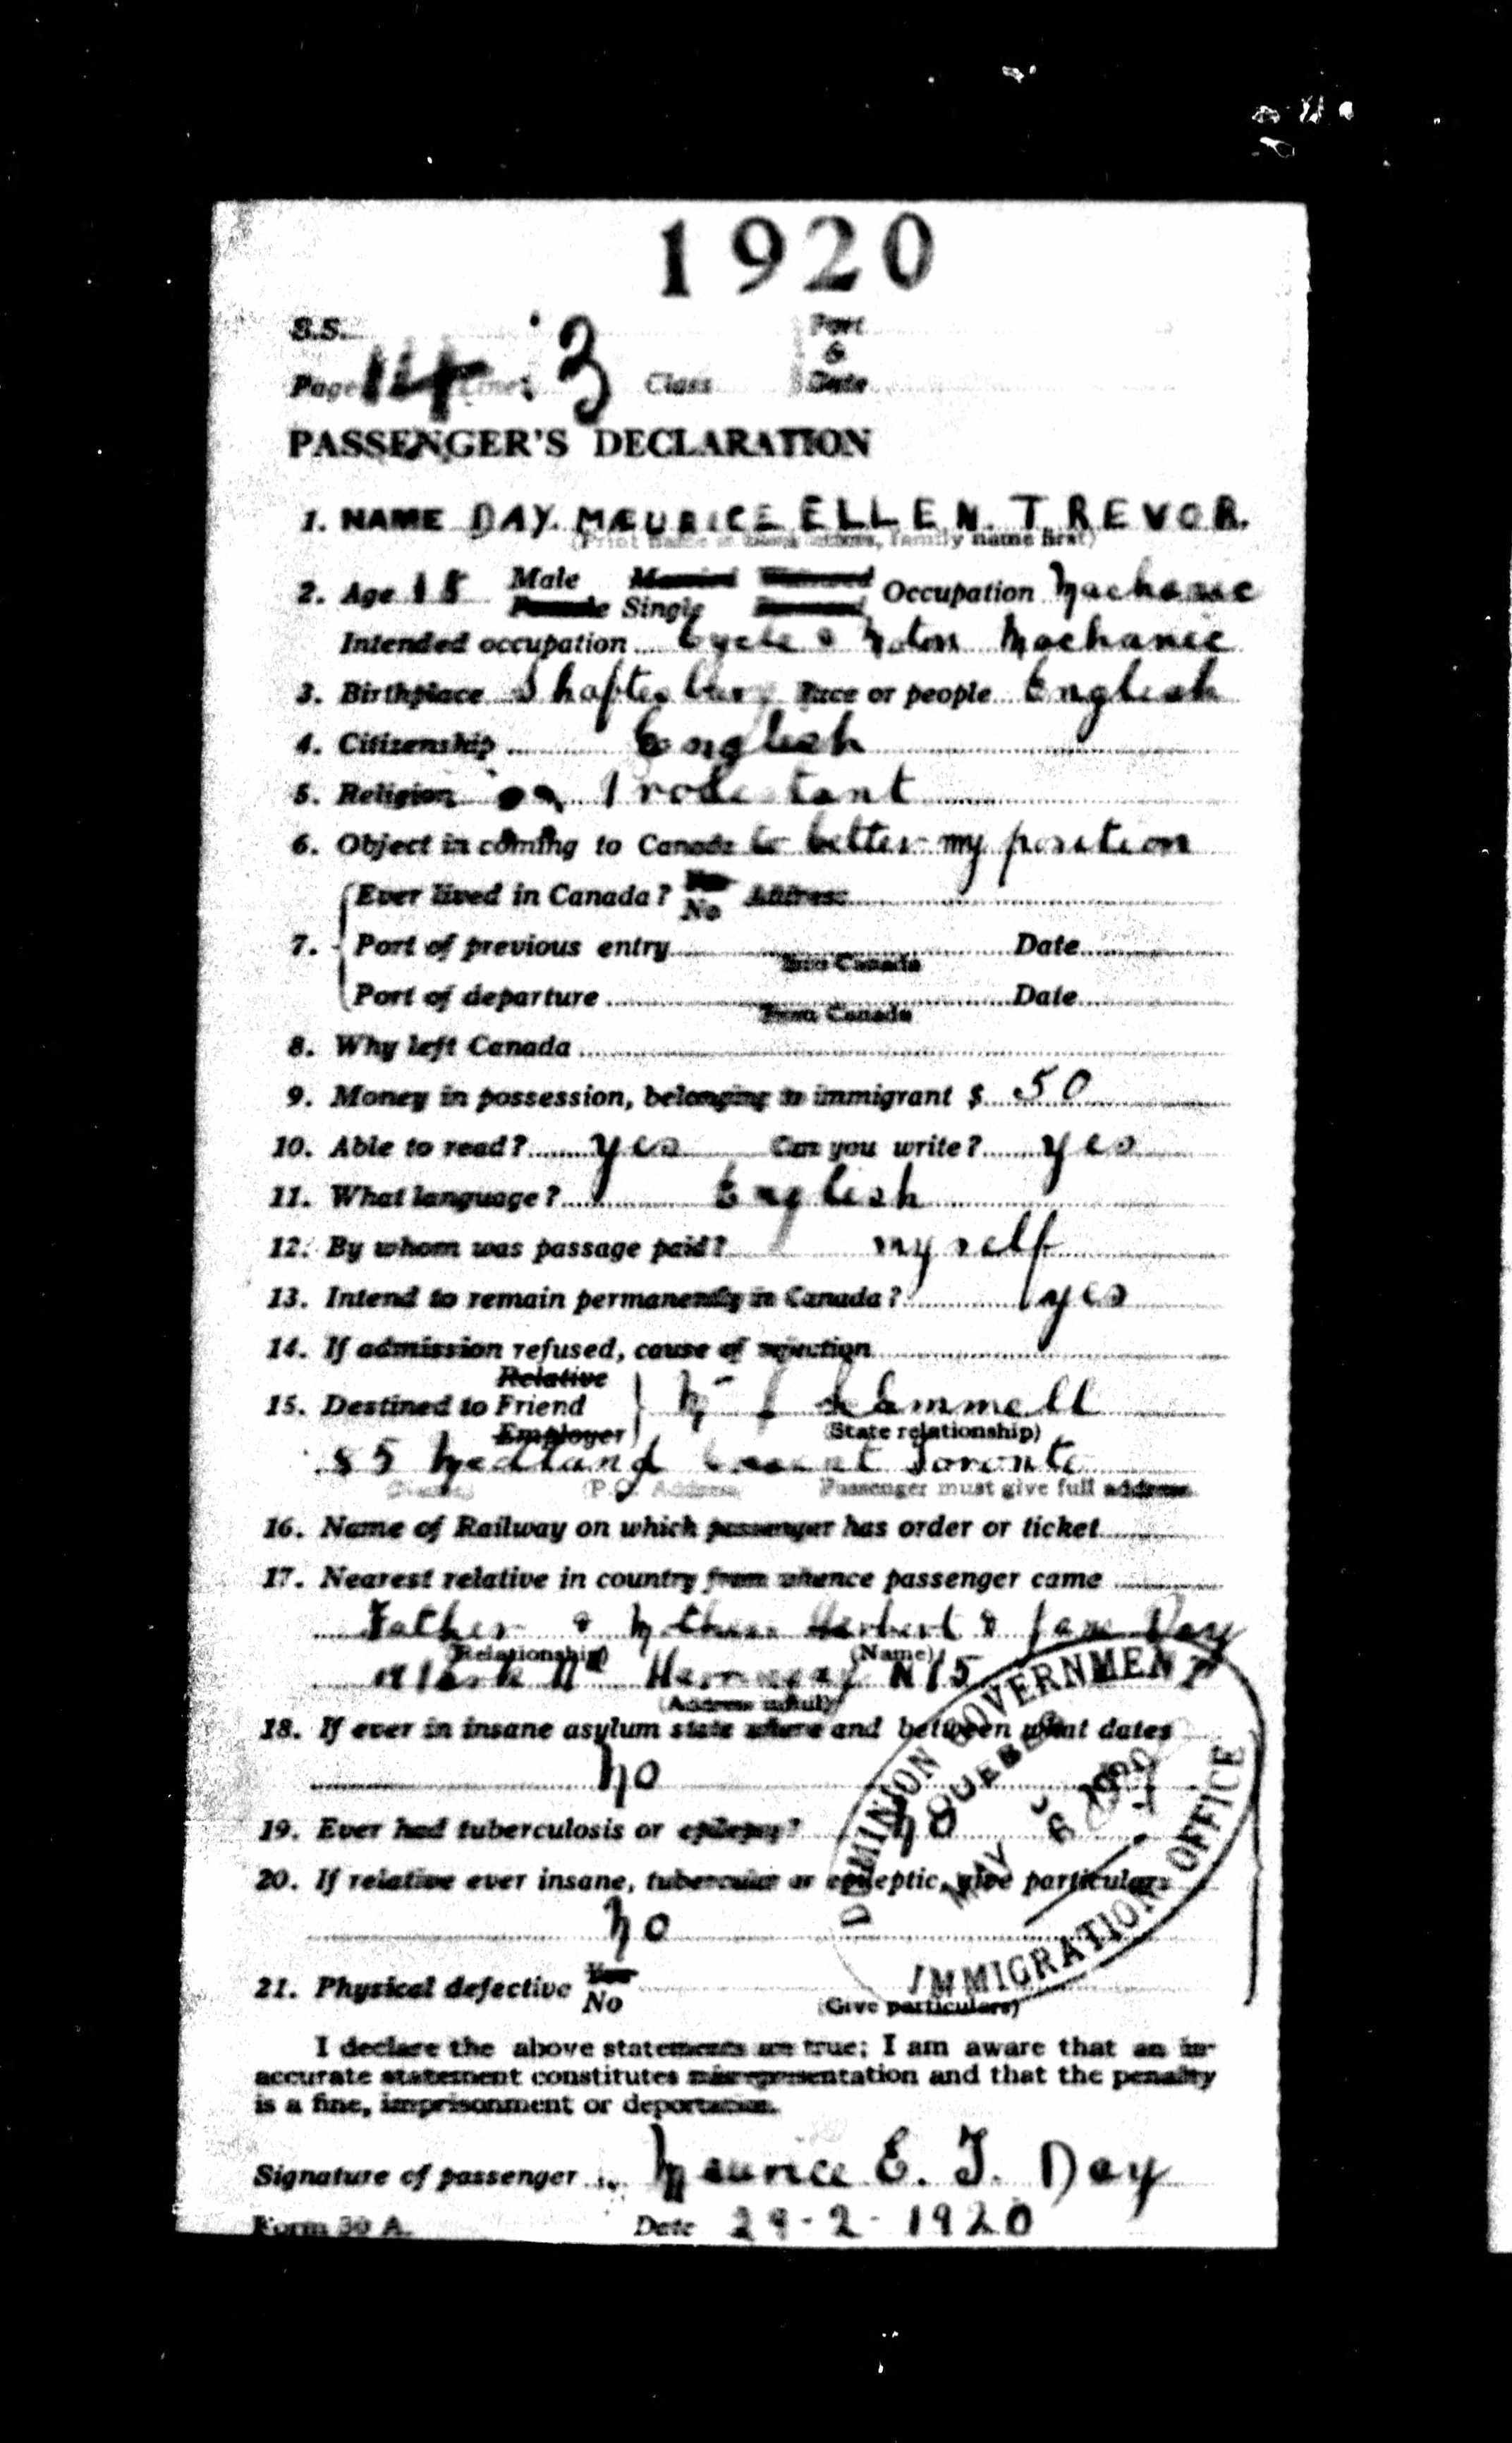 1920
S.S.
Port
&
Page 14 Line 3 Class Date
PASSENGER'S DECLARATION
1. NAME DAY. MAURICE ELLEN. TREVOR.
(Print name in block letters, family name first)
2. Age 18 Male Married Widowed Occupation Mechanic
Female Single
Intended occupation Cycle & Moton Mechanic
3. Birthplace Shaftesbury Race or people English
4. Citizenship English
5. Religion Protestant
6. Object in coming to Canada to better my position
Ever lived in Canada? Yes Address
No
7. Port of previous entry Date
Into Canada
Port of departure Date
From Canada
8. Why left Canada
9. Money in possession, belonging to immigrant $ 50
10. Able to read? yes Can you write? yes
11. What language? English
12. By whom was passage paid? myself
13. Intend to remain permanently in Canada? yes
14. If admission refused, cause of rejection
Relative
15. Destined to Friend Mr
Employer (State relationship)
Toronto
(P.O. Address Passenger must give full address
16. Name of Railway on which passenger has order or ticket
17. Nearest relative in country from whence passenger came
Father & Mother Herbert & Jane Day
(Relationship) (Name)
Harringay N15
(Address in full)
18. If ever in insane asylum state where and between what dates
no
19. Ever had tuberculosis or epilepsy? no
20. If relative ever insane, tubercular or epileptic, give particulars
no
21. Physical defective Yes
No
(Give particulars)
DOMINION GOVERNMENT
QUEBEC
MAY 6 1920
IMMIGRATION OFFICE
I declare the above statements are true; I am aware that an in-
accurate statement constitutes misrepresentation and that the penalty
is a fine, imprisonment or deportation.
Signature of passenger Maurice E. T. Day
Form 30 A. Date 29-2-1920